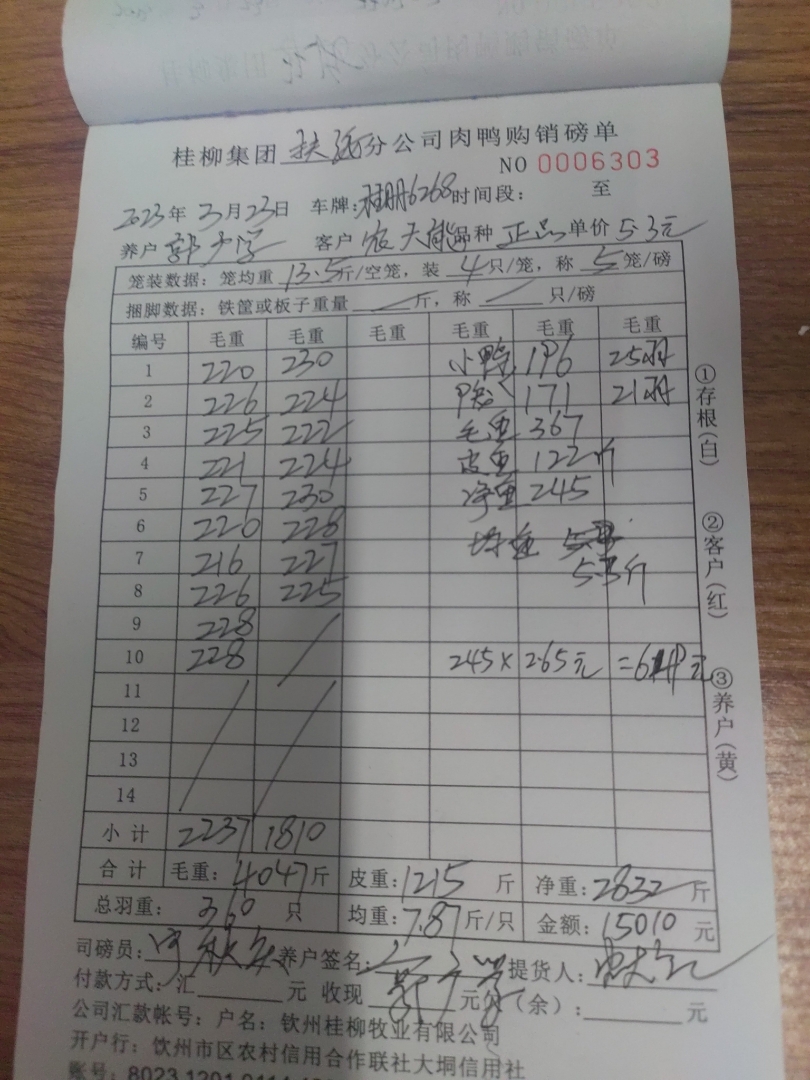 桂柳集团 扶绥 分公司肉鸭购销磅单
NO 0006303
2023年3月23日 车牌: 6268 时间段: 至
养户 客户 农天能 品种 正品 单价 5.3元
笼装数据:笼均重 13.5 斤/空笼,装 4 只/笼,称 5 笼/磅
捆脚数据:铁筐或板子重量 斤,称 只/磅
编号 毛重 毛重 毛重 毛重 毛重 毛重
1 220 230 小鸭 196 25羽
2 226 224 171 21羽
3 225 222 毛重 367
4 221 224 皮重 122斤
5 227 230 净重 245
6 220 228 均重
7 216 227 5.3斤
8 226 225
9 228
10 228 245×2.65元=649元
11
12
13
14
小计 2237 1810
合计 毛重:4047斤 皮重:1215斤 净重:2832斤
总羽重:360只 均重:7.87斤/只 金额:15010元
司磅员: 养户签名: 提货人:
付款方式:汇 元 收现 元 (余): 元
公司汇款帐号:户名:钦州桂柳牧业有限公司
开户行:钦州市区农村信用合作联社大垌信用社
账号:8023 1201 0114
①存根(白)
②客户(红)
③养户(黄)